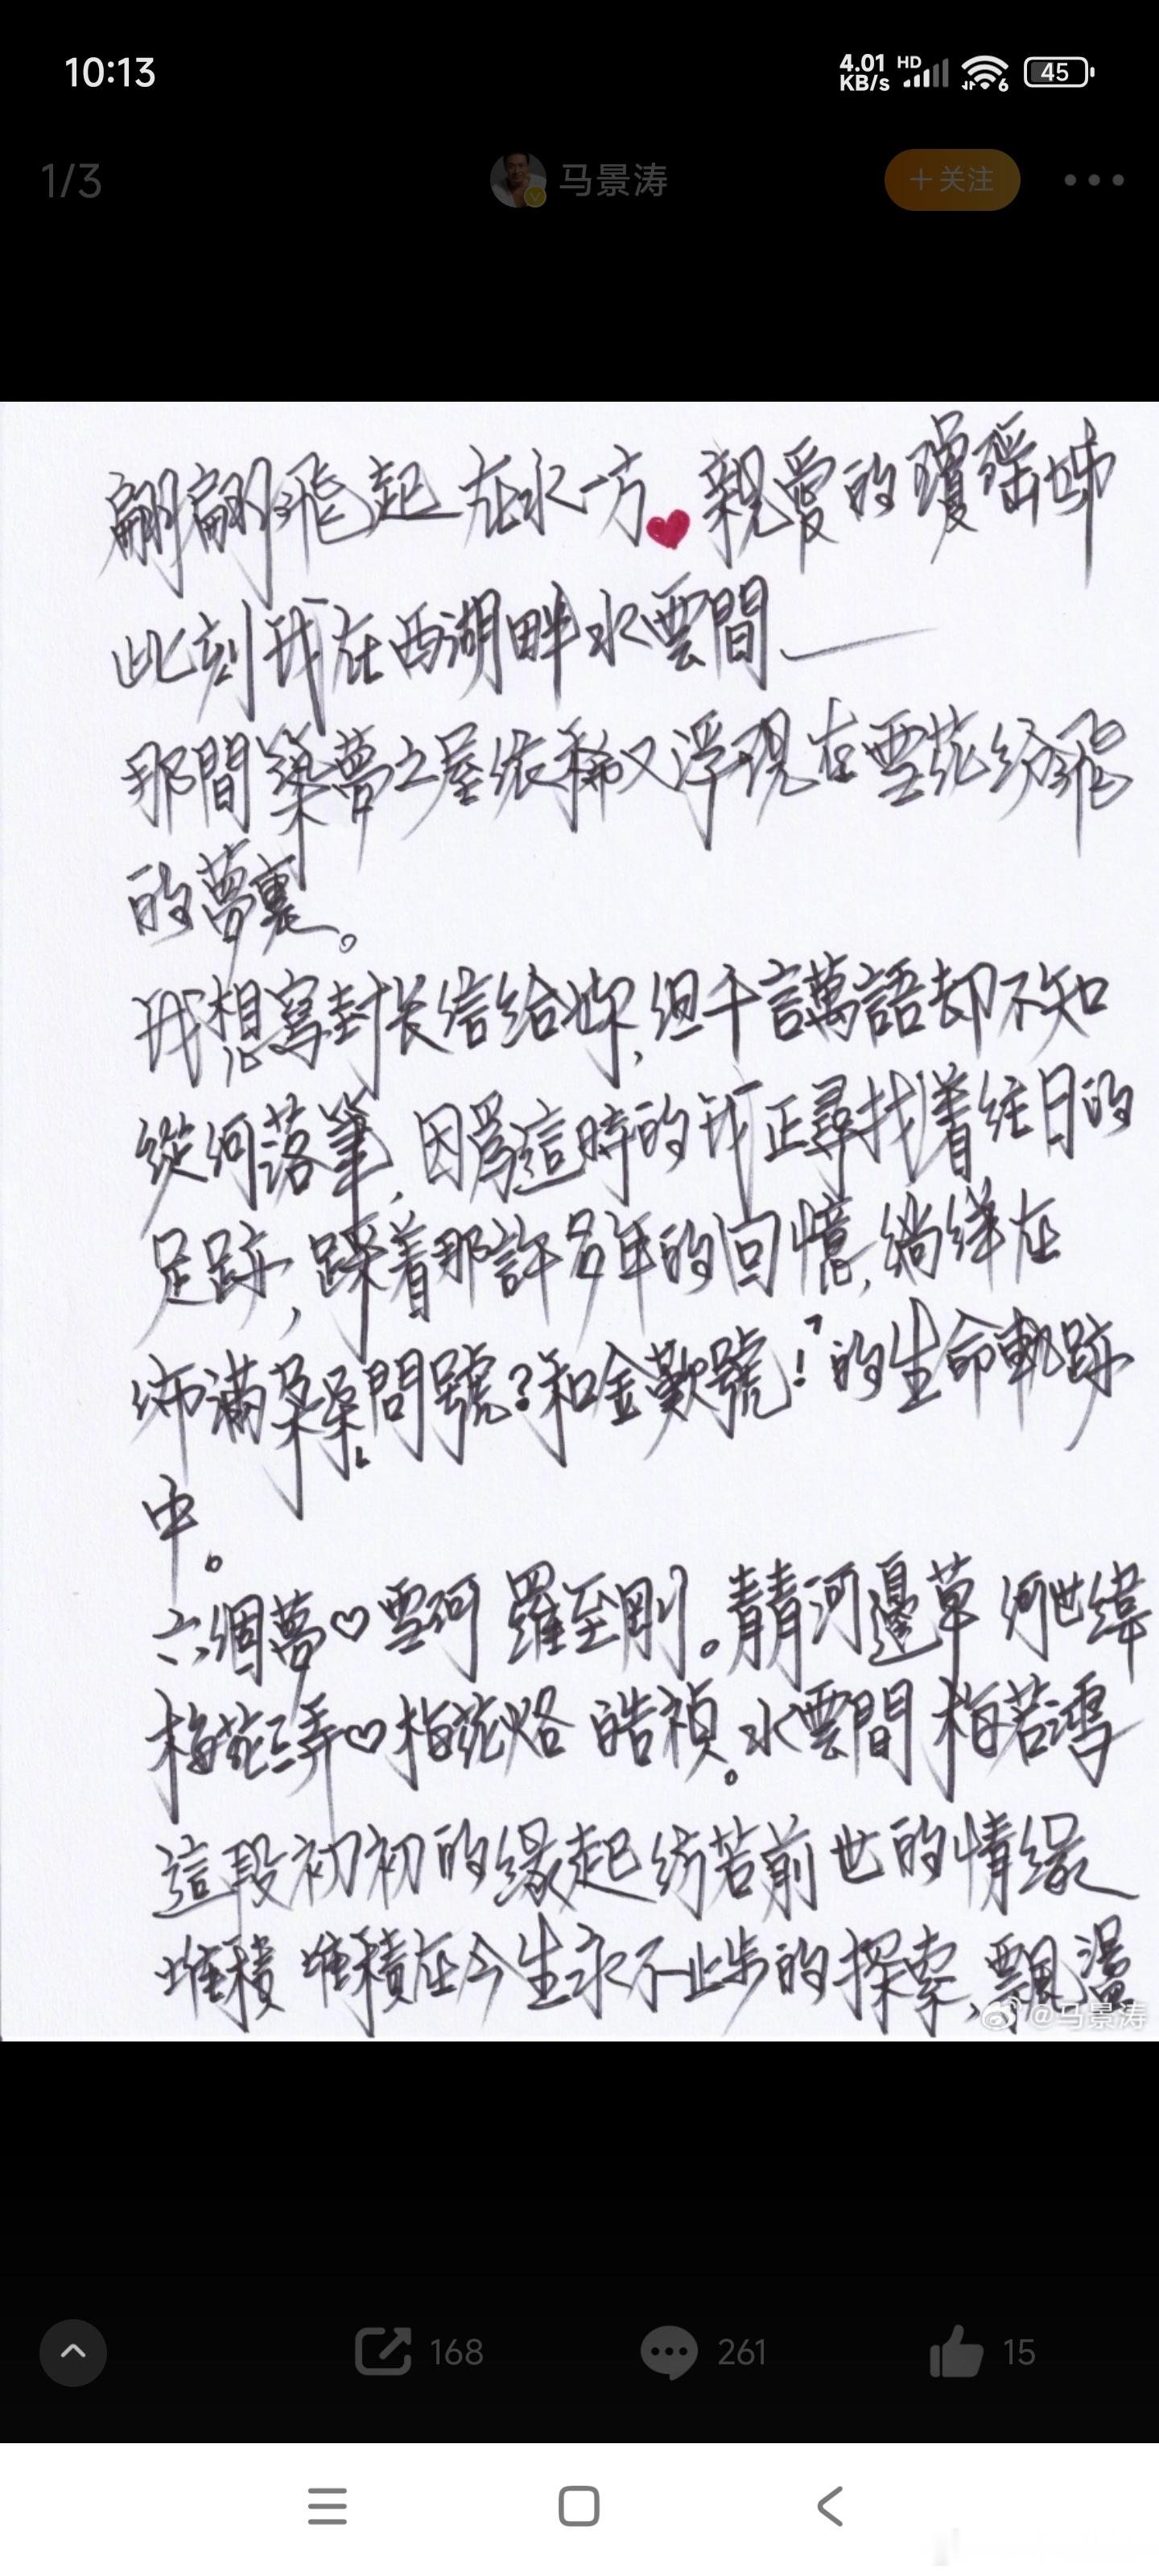 10:13
4.01 KB/s HD 6 45
1/3 马景涛 +关注
翩翩飛起在水一方♥親愛的瓊瑤姊
此刻我在西湖畔水雲間——
那間築夢之屋依稀又浮現在雪花紛飛
的夢裏。
我想寫封长信給妳,但千言萬語却不知
從何落筆,因爲這時的我正尋找着往日的
足跡,踩着那許多年的回憶,徜徉在
佈滿朵朵問號?和金歎號!的生命軌跡
中。
六個夢♡雪珂 羅至剛。青青河邊草 何世緯
梅花三弄♡梅花烙 皓禎。水雲間 梅若鴻
這段初初的緣起 前世的情緣
堆積 堆積在今生永不止步的探索,飄盪
@马景涛
168 261 15